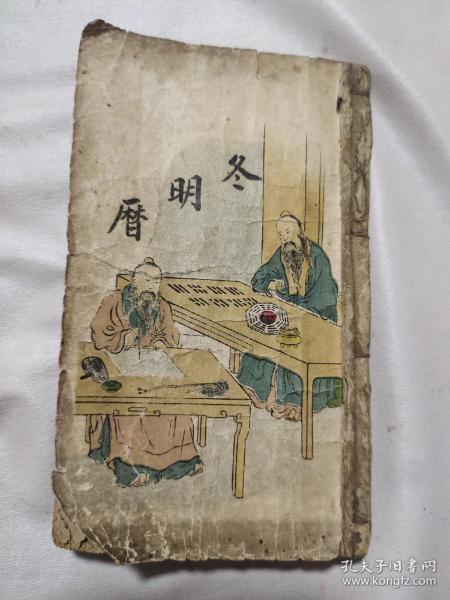 冬明暦
孔夫子旧书网
www.kongfz.com